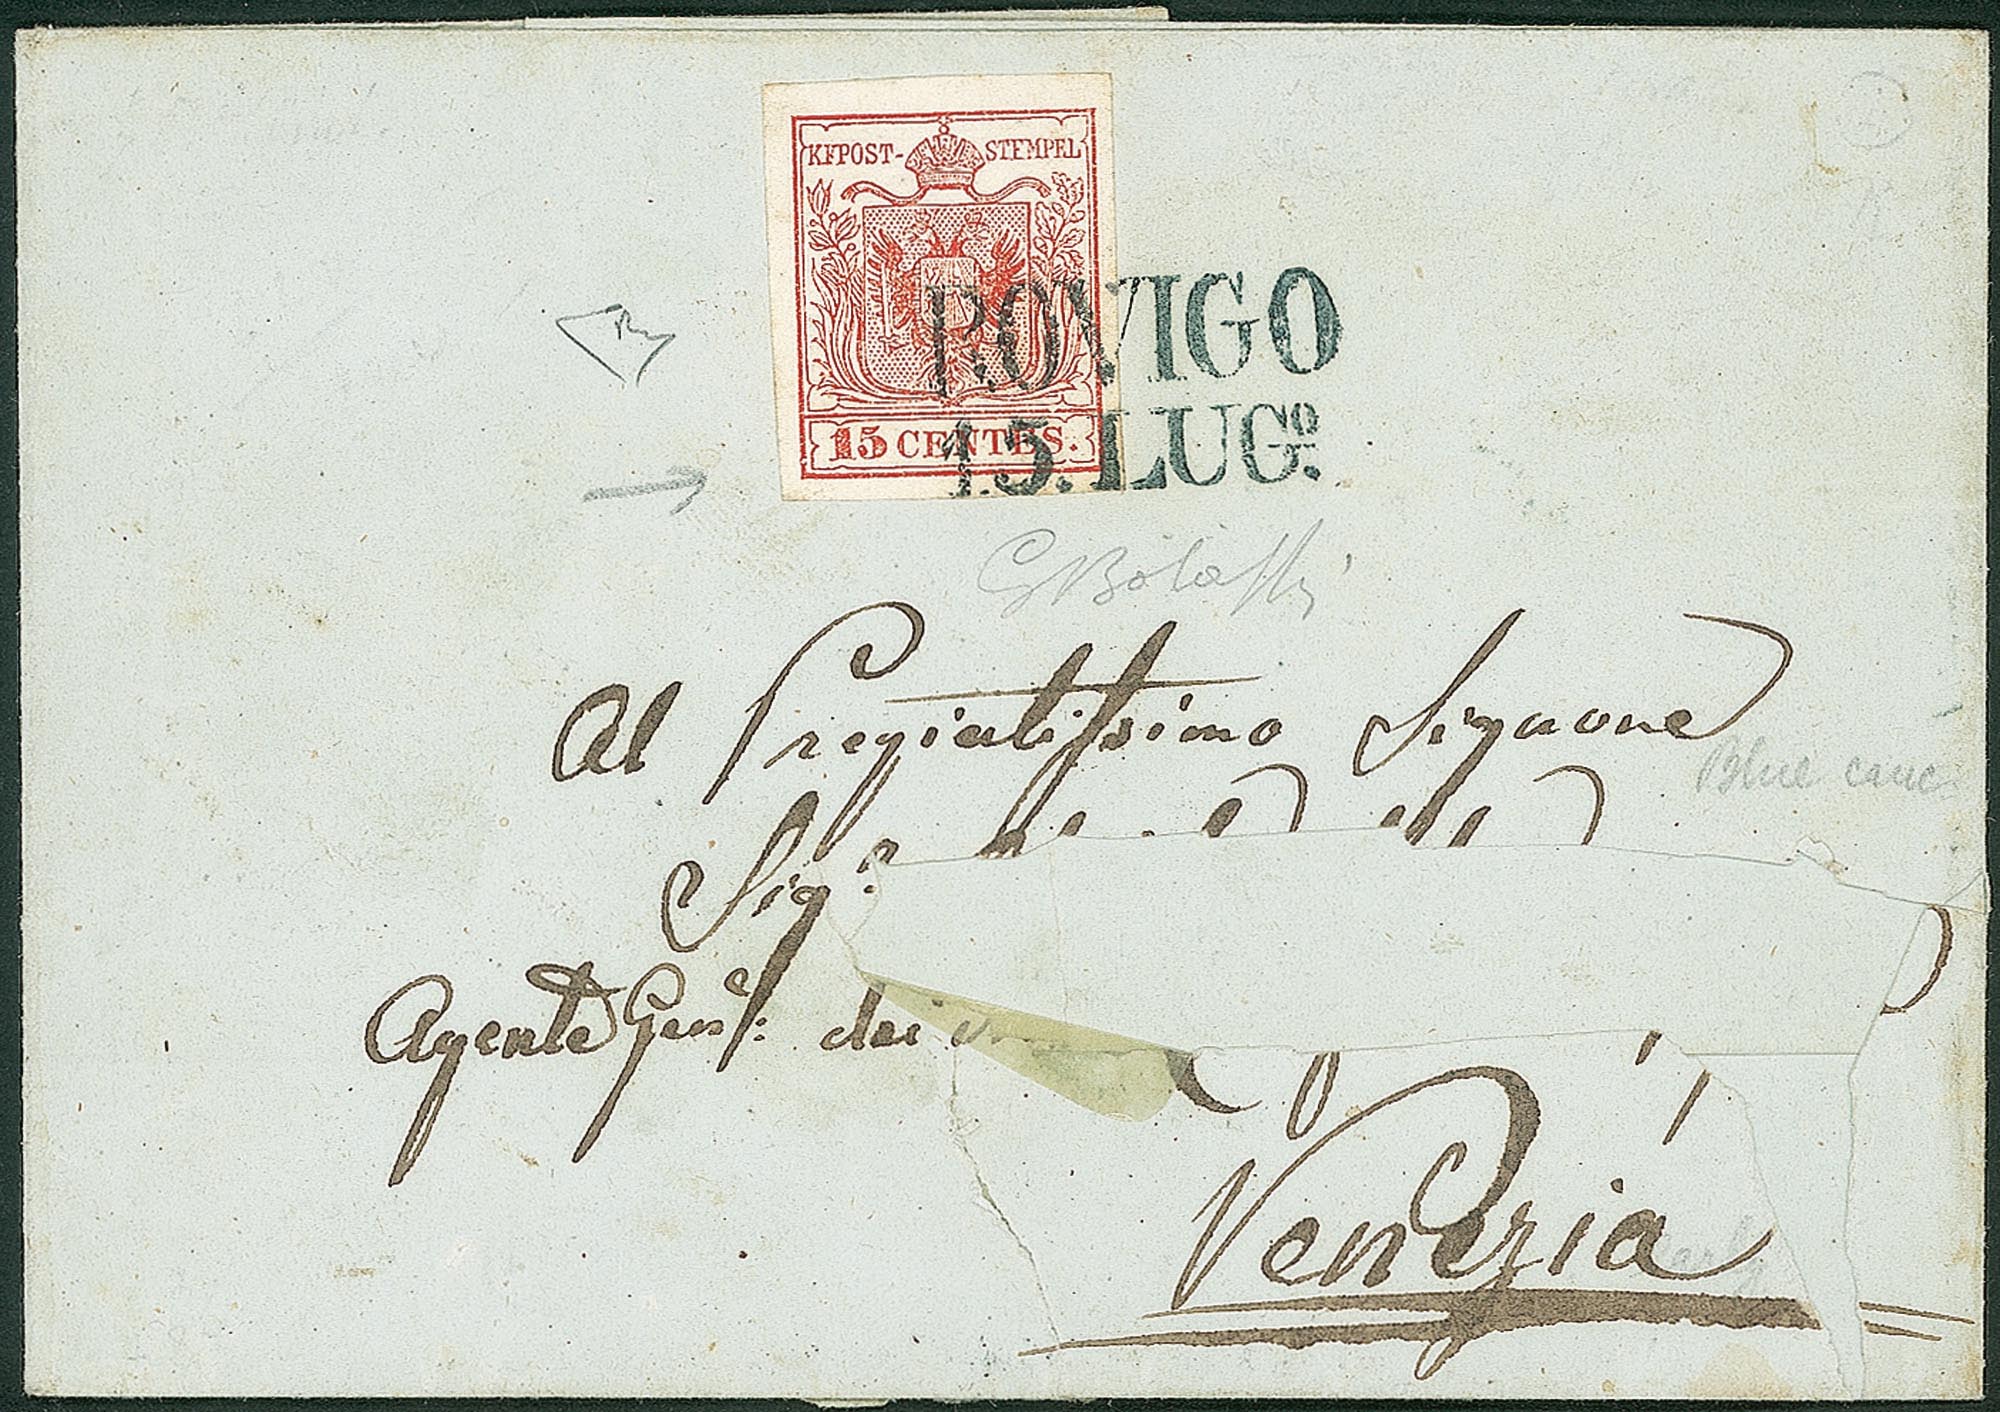 KKPOST- STEMPEL
15 CENTES.
ROVIGO
15. LUGº.
GBolaffi
Al Pregiatissimo Signore
Blue canc
Sigr.
Agente Genl. dei
Venezia